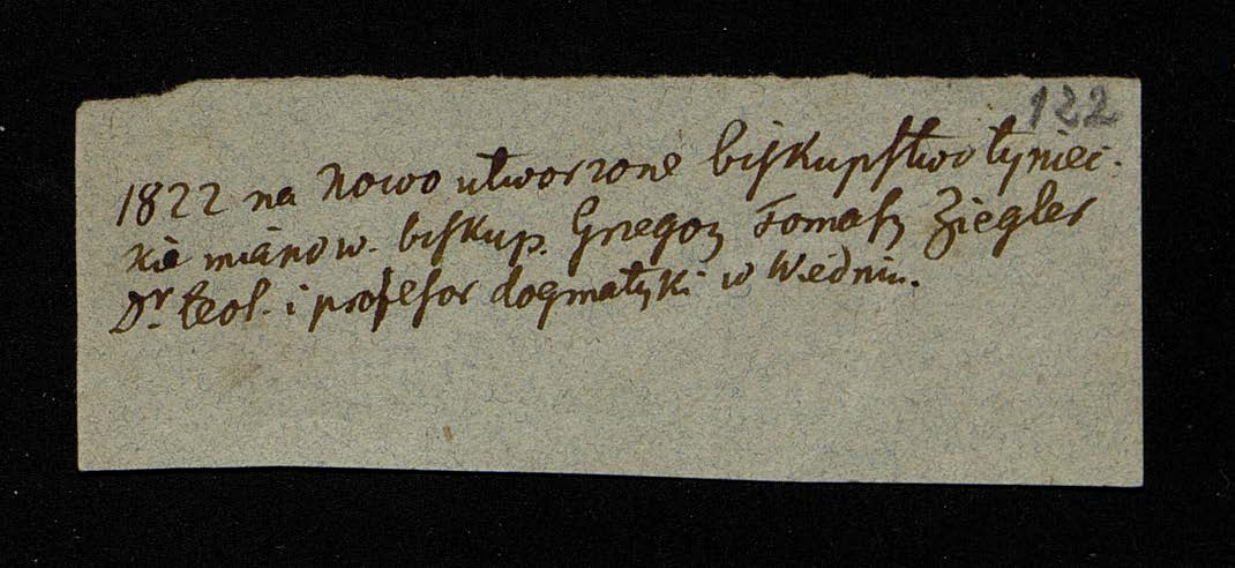 122
1822 na nowo utworzone biskupstwo tyniec:
kie mianow. biskup. Grzegorz Tomasz Ziegler
Dr. teol. i profesor dogmatyki w Wiedniu.